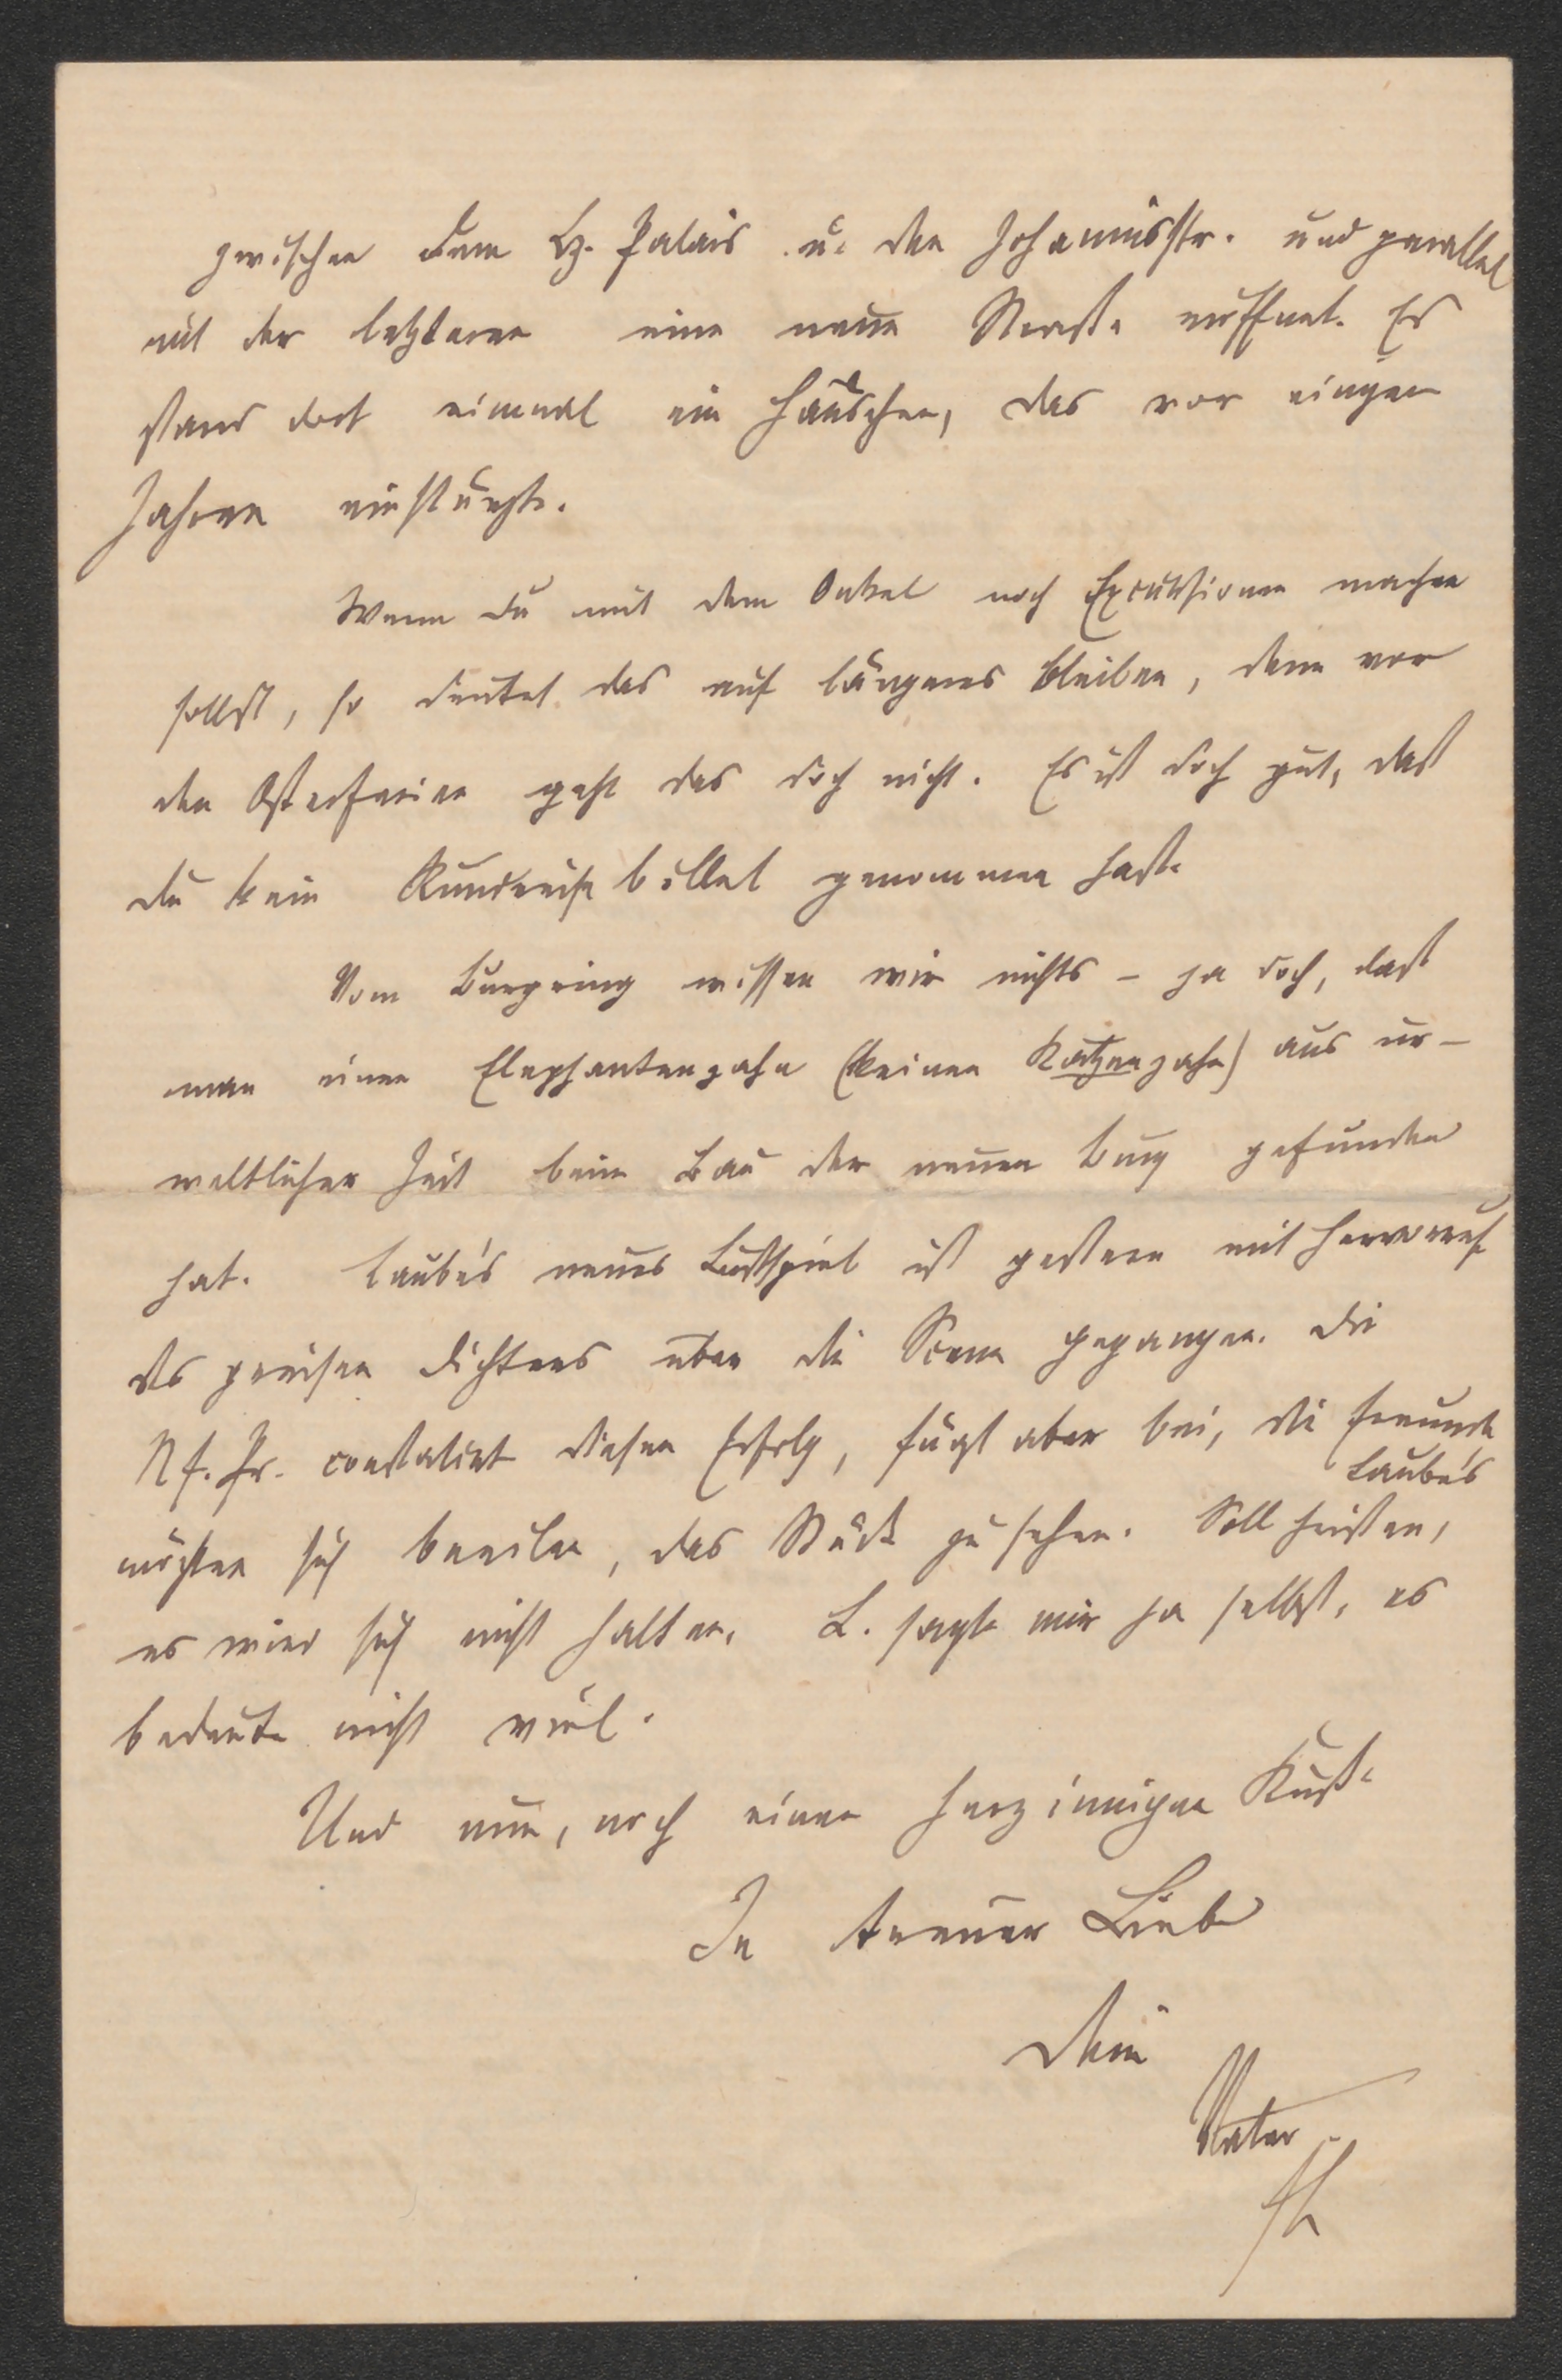 zwischen dem Eh. Palais u. der Johannisstr. und parallel
mit der letzteren eine neue Strasse eröffnet. Es
stand dort einmal ein Häuschen, das vor einigen
Jahren einstürzte.
Wenn du mit dem Onkel noch Excursionen machen
sollst, so deutet das auf längeres Bleiben, denn vor
den Osterferien geht das doch nicht. Es ist doch gut, daß
du kein Rundreisebillet genommen hast.
Vom Burgring wissen wir nichts – ja doch, daß
man einen Elephantenzahn (keinen Katzenzahn) aus ur-
weltlicher Zeit beim Bau der neuen Burg gefunden
hat. Laube's neues Lustspiel ist gestern mit Hervorruf
des greisen Dichters über die Scene gegangen. Die
N f. Pr. constatirt diesen Erfolg, fügt aber bei, die Freunde
Laube's
möchten sich beeilen, das Stück zu sehen. Soll heißen,
es wird sich nicht halten. L. sagte mir ja selbst, es
bedeute nicht viel.
Und nun, noch einen herzinnigen Kuß.
In treuer Liebe
Dein
Vater